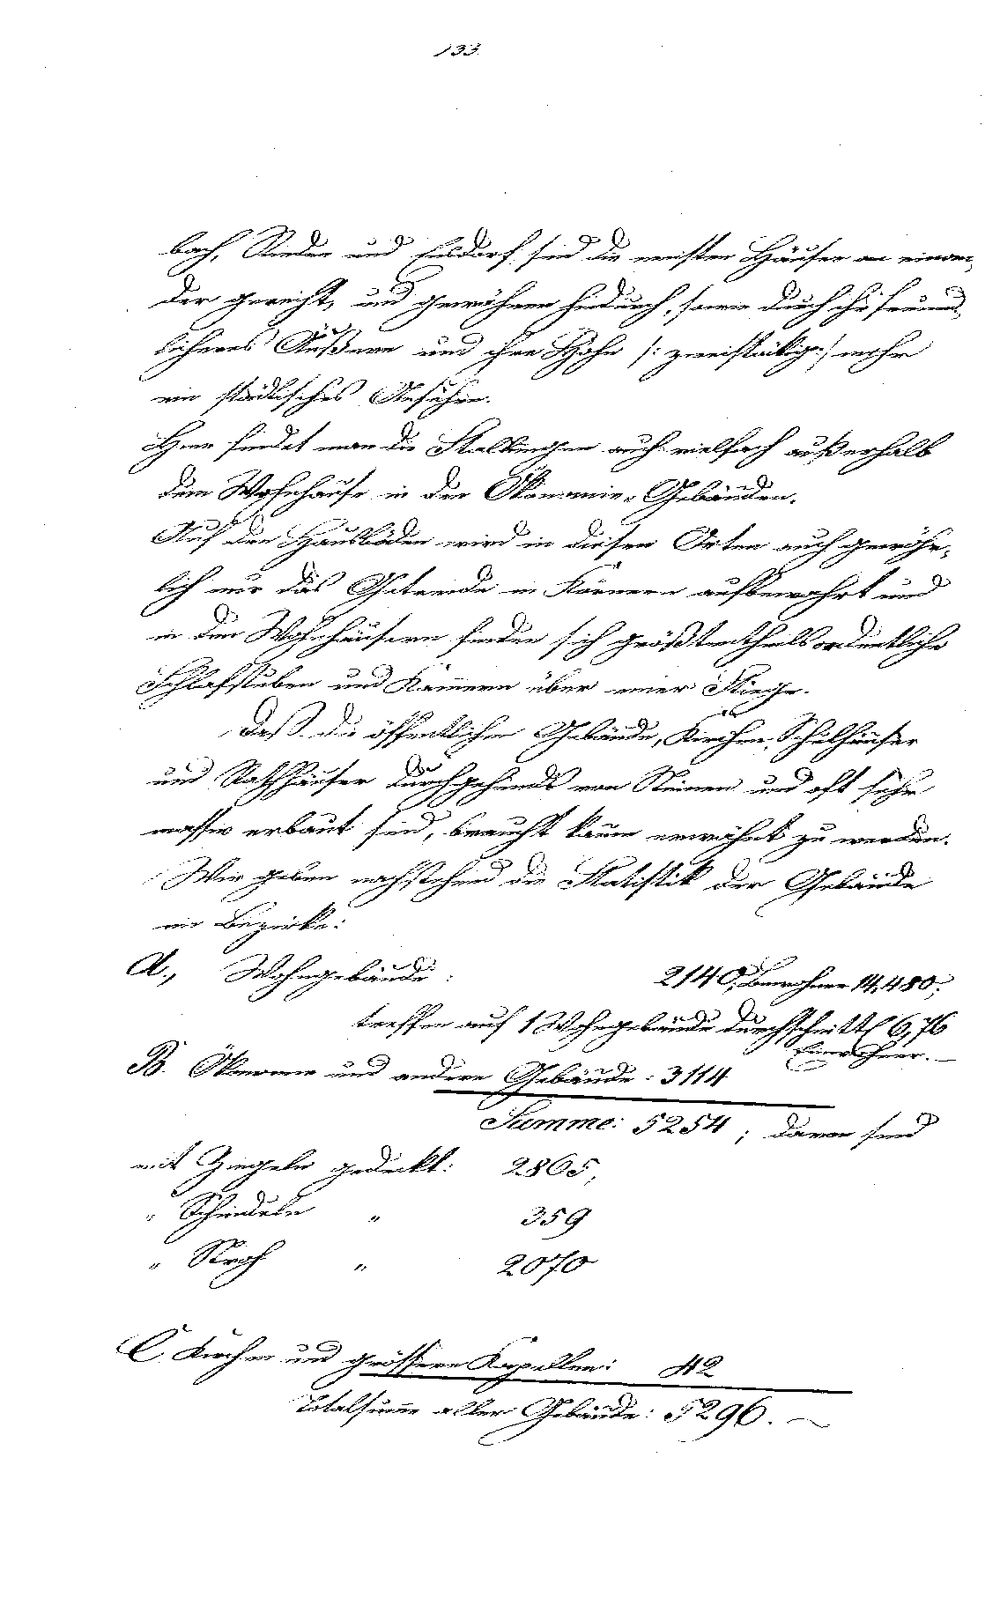 133.
bach, Rieden und Ensdorf sind die meisten Häuser an einan-
der gereiht, und gewähren hiedurch, sowie durch ihr freund-
licheres Äußere und ihre Höhe /: zweistökig :/ mehr
ein städtisches Ansehen.
Hier findet man die Stallungen auch vielfach außerhalb
dem Wohnhause in den Ökonomie-Gebäuden.
Auf den Hausböden wird in diesen Orten auch gewöhn-
lich nur das Getreide in Körnern aufbewahrt und
in den Wohnhäusern finden sich größtentheils ordentliche
Schlafstuben und Kammern über einer Stiege.
Daß die öffentlichen Gebäude, Kirchen, Schulhäuser
und Rathhäuser durchgehends von Steinen und oft sehr
massiv erbaut sind, braucht kaum erwähnt zu werden.
Wir geben nachstehend die Statistik der Gebäude
im Bezirke:
A., Wohngebäude: 2140, Bewohner 14,480;
treffen auf 1 Wohngebäude durchschnittl 6,76
Einwohner. —
B. Ökonomie und andere Gebäude: 3114
Summe: 5254; davon sind
mit Ziegeln gedeckt: 2865,
" Schindeln " 359
" Stroh " 2070
C. Kirchen und grössere Kapellen: 42
Totalsumme aller Gebäude: 5296. —